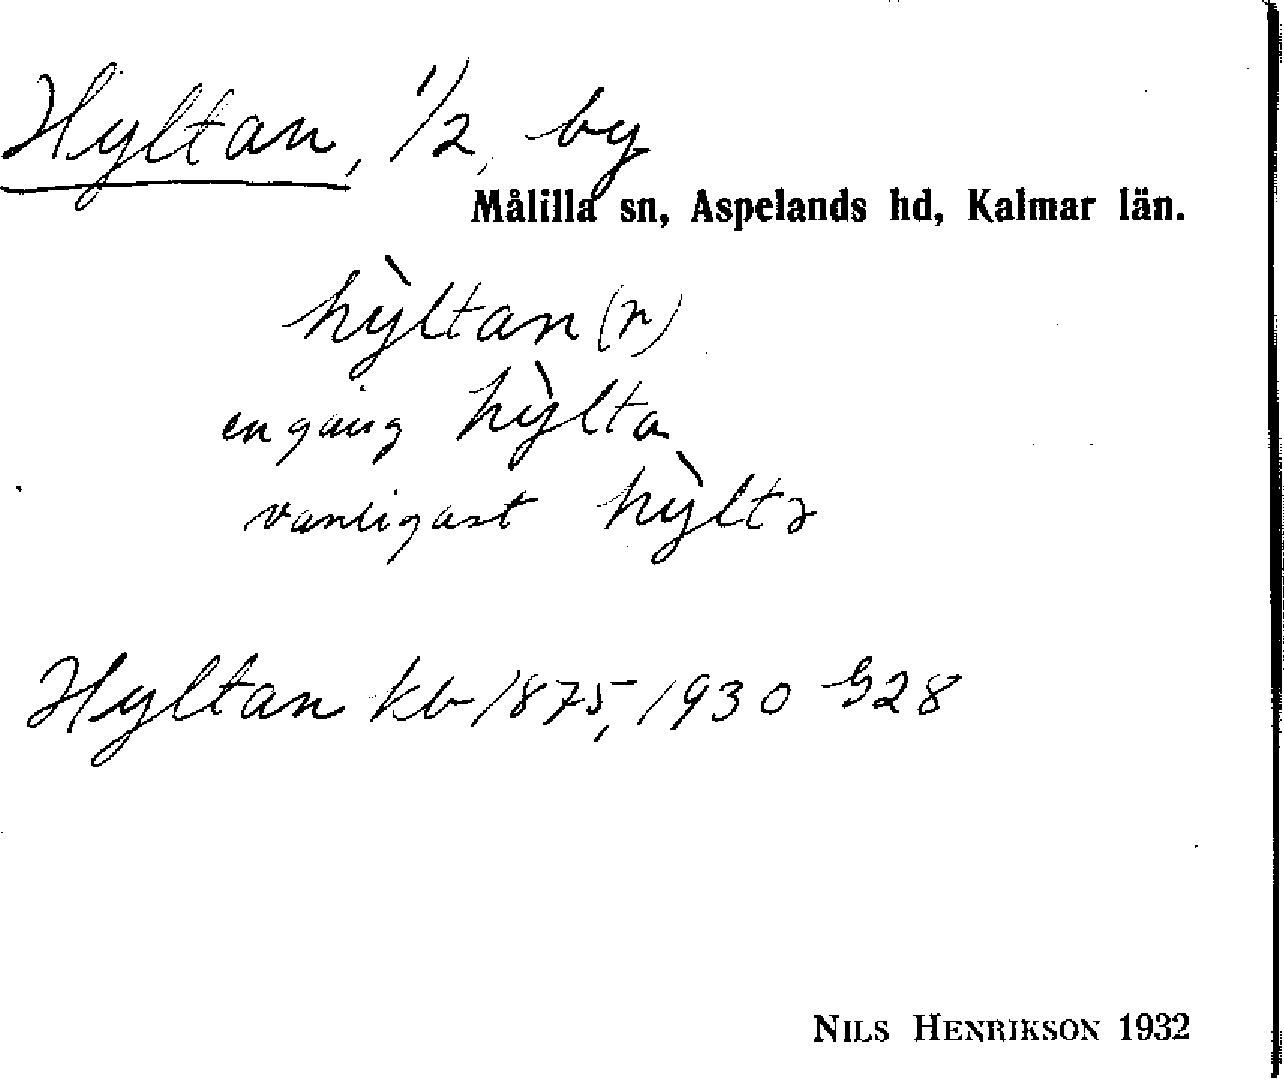 Hyltan, 1/2, by
Målilla sn, Aspelands hd, Kalmar län.
hỳltan (n)
en gång hỳlta
vanligast hỳltə
Hyltan kb 1875, 1930 G28
NILS HENRIKSON 1932